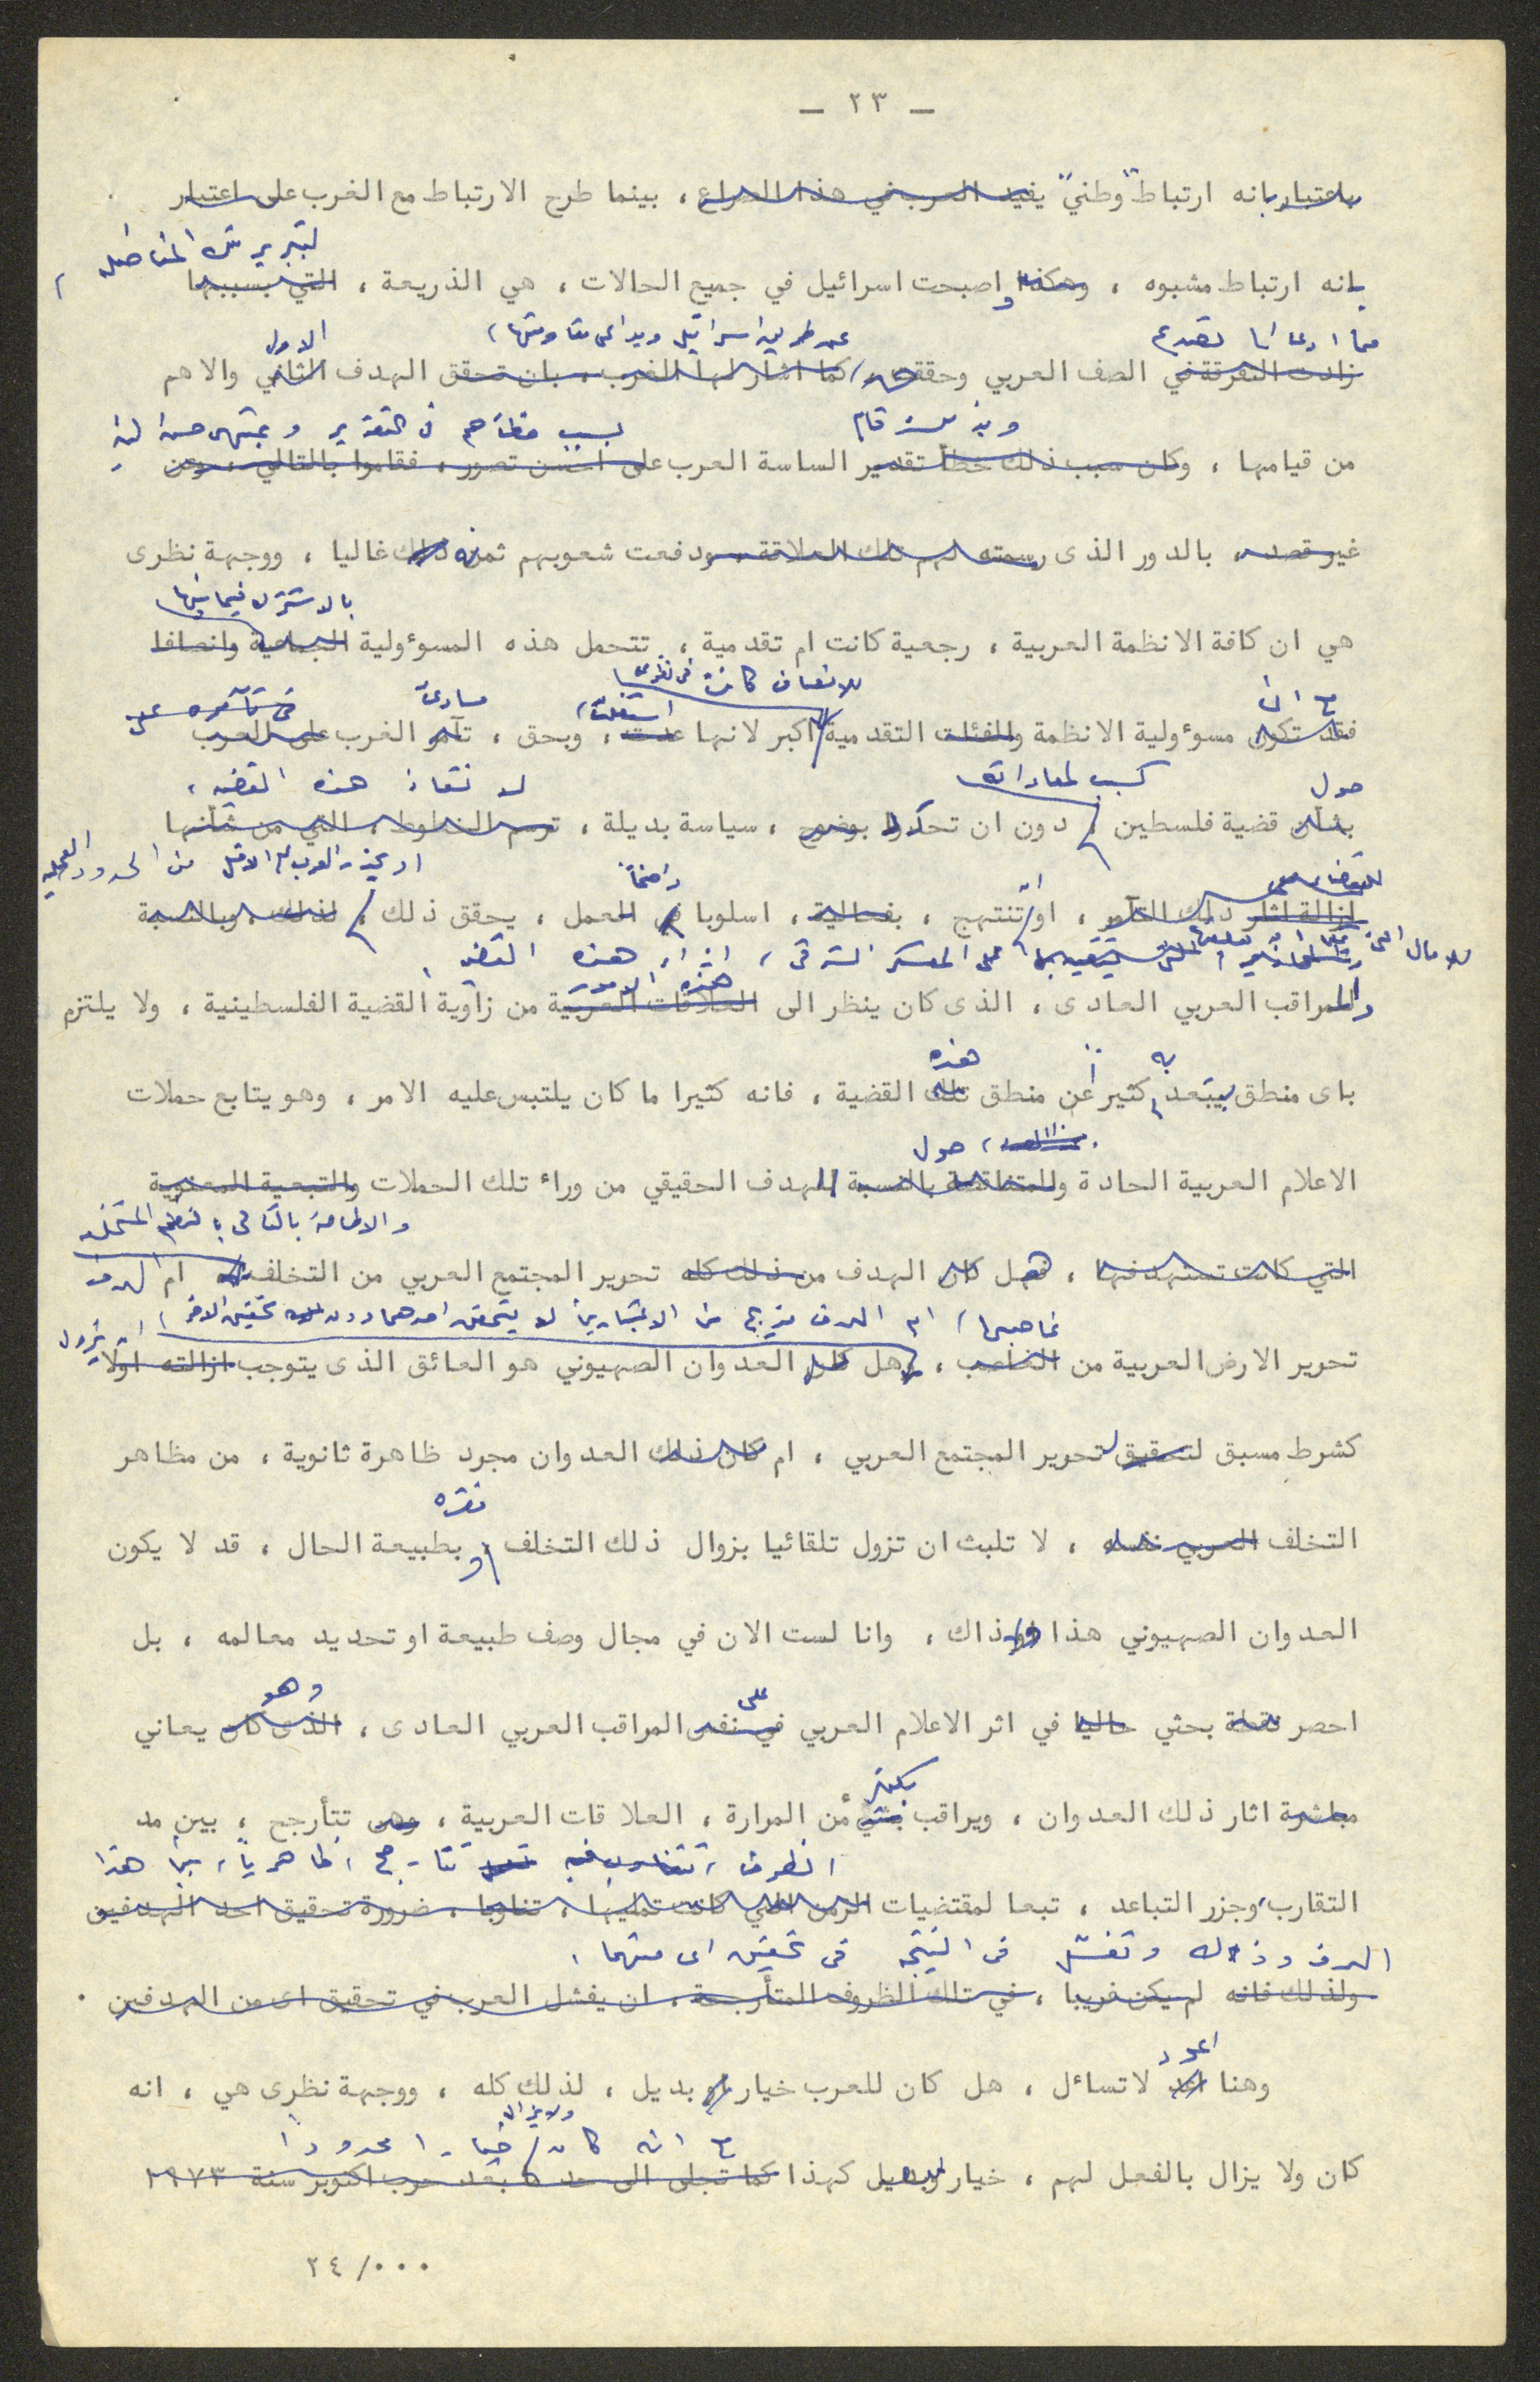 — ٢٣ —
باعتبار بانه ارتباط "وطني" يفيد العرب في هذا الصراع ، بينما طرح الارتباط مع الغرب على اعتبار
لتبرير
بانه ارتباط مشبوه ، وهكذا و اصبحت اسرائيل في جميع الحالات ، هي الذريعة ، التي بسببها
الاول
زادت التفرقة في الصف العربي وحققت ، كما اشار لها الغرب ، بان تحقق الهدف الثاني والاهم
بسبب خطأهم في التقدير و حسن النية
من قيامها ، وكان سبب ذلك خطأ تقدير الساسة العرب على احسن تصور ، فقاموا بالتالي ، وعن
غير قصد ، بالدور الذى رسمته لهم تلك العلاقة ، ودفعت شعوبهم ثمن ذلك غاليا ، ووجهة نظرى
بالاشتراك فيما بينها
هي ان كافة الانظمة العربية ، رجعية كانت ام تقدمية ، تتحمل هذه المسوءولية الجماعية وانصافا
للانصاف كانت في نظرى
فقد تكون مسوءولية الانظمة والفئات التقدمية اكبر لانها عدت ، وبحق ، تآمر الغرب على العرب
حول لانقاذ هذه القضية ،
بشأن قضية فلسطين ، دون ان تحدد بوضوح ، سياسة بديلة ، ترسم الخطوط ، التي من شأنها
واضحا
ازالة اثار ذلك التآمر ، او تنتهج ، بفعالية ، اسلوبا في العمل ، يحقق ذلك ، لذلك ، وبالنسبة
على المعسكر الشرقى ، ازاء هذه القضية ،
هذه الامور
والمراقب العربي العادى ، الذى كان ينظر الى العلاقات العربية من زاوية القضية الفلسطينية ، ولا يلتزم
به هذه
باى منطق يبتعد كثيرا عن منطق تلك القضية ، فانه كثيرا ما كان يلتبس عليه الامر ، وهو يتابع حملات
حول
الاعلام العربية الحادة والمتناقضة بالنسبة للهدف الحقيقي من وراء تلك الحملات والتبعية المعنوية
والاطاحة بالتالى بالنظم المتخلفه
التي كانت تستهدفها ، فهل كان الهدف من ذلك كله تحرير المجتمع العربي من التخلف ام الهدف
غاصبها ، ام الهدف مزيج من الاعتبارين لا يتحقق احدهما دون تحقيق الاخر ان يزول
تحرير الارض العربية من الغاصب ، وهل كان العدوان الصهيوني هو العائق الذى يتوجب ازالته اولا
كشرط مسبق لتحقيق لتحرير المجتمع العربي ، ام كان ذلك العدوان مجرد ظاهرة ثانوية ، من مظاهر
التخلف العربي نفسه ، لا تلبث ان تزول تلقائيا بزوال ذلك التخلف و بطبيعة الحال ، قد لا يكون
العدوان الصهيوني هذا او ذاك ، وانا لست الان في مجال وصف طبيعة او تحديد معالمه ، بل
على وهو
احصر نقطة بحثي حاليا في اثر الاعلام العربي في نفس المراقب العربي العادى ، الذى كان يعاني
بكثير
مباشرة اثار ذلك العدوان ، ويراقب بشيء من المرارة ، العلاقات العربية ، وهى تتأرجح ، بين مد
الظروف ، ظاهريا ، بين هذا
التقارب ، وجزر التباعد ، تبعا لمقتضيات الزمن التي كانت تمليها ، تناوبا ، ضرورة تحقيق احد الهدفين
الهدف وذلك وتفشل فى النتيجه فى تحقيق اى منهما ،
ولذلك فانه لم يكن غريبا ، في تلك الظروف المتأرجحة ، ان يفشل العرب في تحقيق اى من الهدفين .
اعود
وهنا لاتسائل ، هل كان للعرب خيار او بديل ، لذلك كله ، ووجهة نظرى هي ، انه
ولايزال
مع انه كان خيارا محدودا
كان ولا يزال بالفعل لهم ، خيار وبديل كهذا كما تجلى الى حد ما بعد حرب اكتوبر سنة ١٩٧٣
٢٤/...